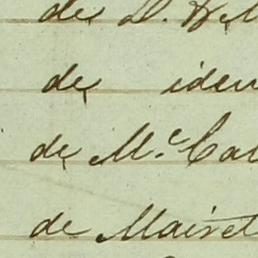 de D.
de iden
de Mc. Cal
de Mairet